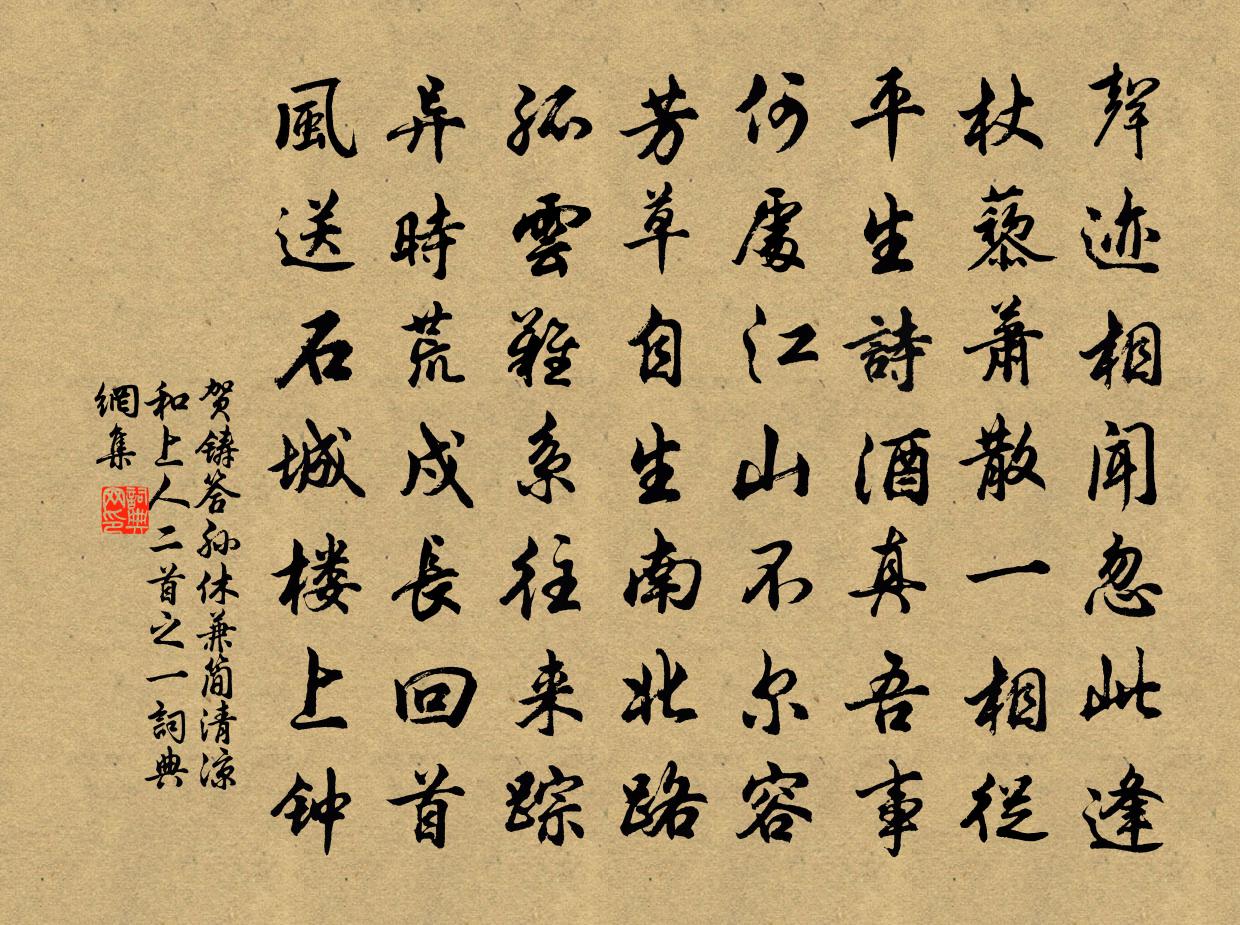 聲迹相聞忽此逢
杖藜萧散一相從
平生詩酒真吾事
何處江山不尔容
芳草自生南北路
孤雲難系往来踪
异時荒戍長回首
風送石城楼上钟
贺鑄答孙休兼简清凉
和上人二首之一詞典
網集
詞典网印